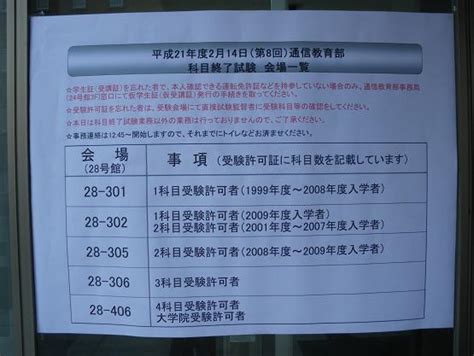 平成21年度2月14日(第8回)通信教育部
科目終了試験 会場一覧
☆学生証(受講証)を忘れた者で、本人確認できる運転免許証などを持参していない場合のみ、通信教育部事務局
(24号館3F)窓口にて仮学生証(仮受講証)発行の手続きを取ってください。
☆受験許可証を忘れた者は、受験会場にて直接試験監督者に受験科目等の確認をしてください。
☆本日は科目終了試験業務以外の業務は行っておりませんので、ご了承ください。
☆事務連絡は12:45~開始しますので、それまでにトイレなどお済ませください。
会 場
(28号館)
事 項 (受験許可証に科目数を記載しています)
28-301
1科目受験許可者(1999年度~2008年度入学者)
28-302
1科目受験許可者(2009年度入学者)
2科目受験許可者(2001年度~2007年度入学者)
28-305
2科目受験許可者(2008年度~2009年度入学者)
28-306
3科目受験許可者
28-406
4科目受験許可者
大学院受験許可者